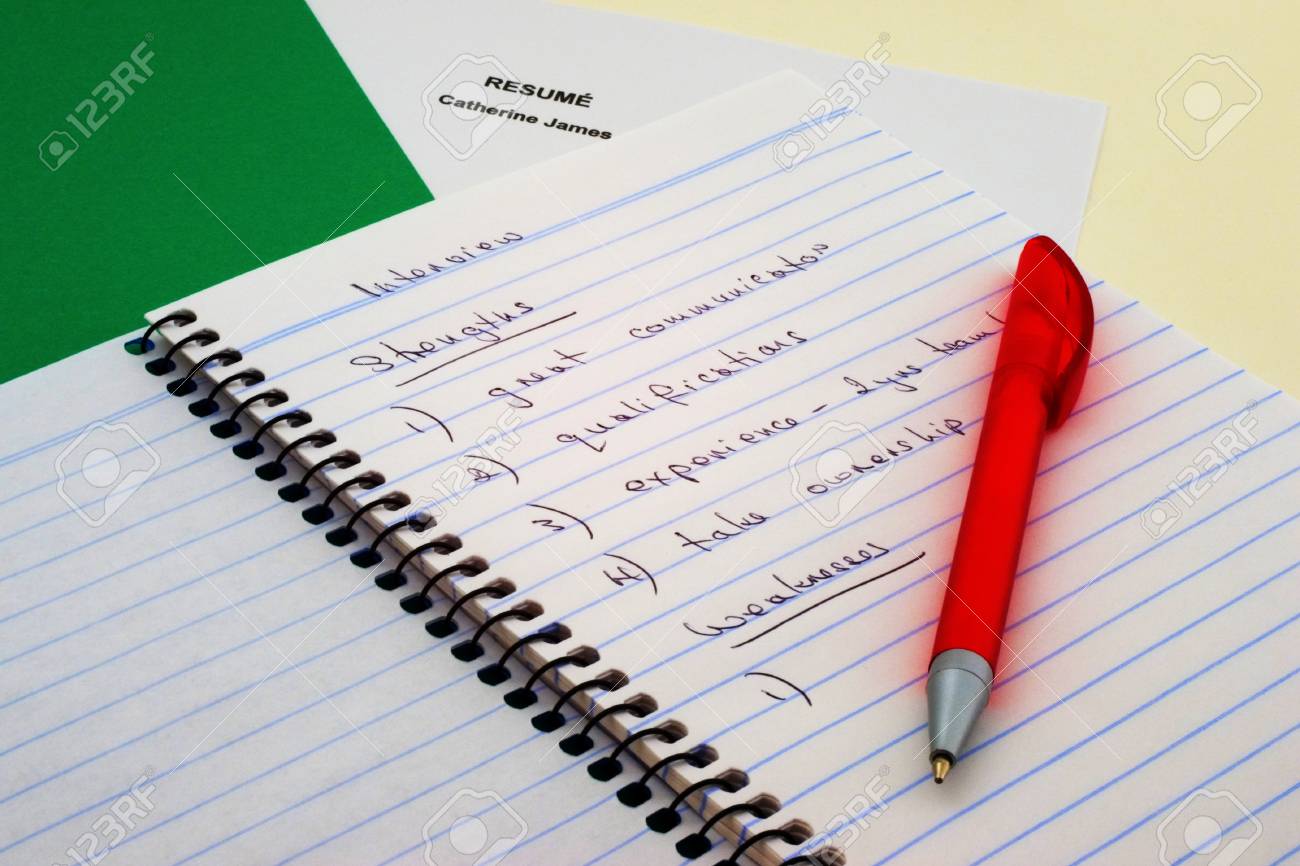 RESUMÉ
Catherine James
Interview
Strengths
1) great communicator
2) qualifications
3) experience - 2yrs team!
4) take ownership
Weaknesses
1)
123RF